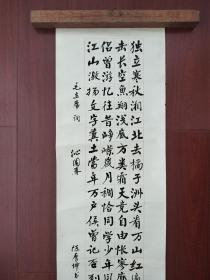 独立寒秋湘江北去橘子洲头看万山红
击长空鱼翔浅底万类霜天竞自由怅寥廓
侣曾游忆往昔峥嵘岁月稠恰同学少年
江山激扬文字粪土当年万户侯曾记否到
毛主席词 沁园春